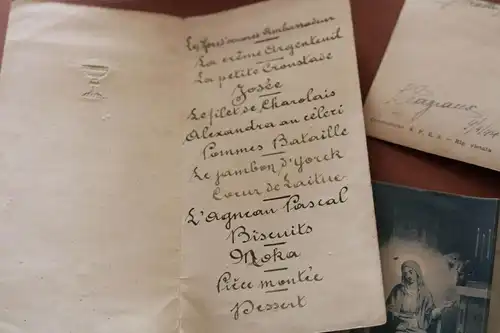 Les Hors d'œuvres Ambassadeur
La crême Argenteuil
La petite Croustade
Josée
Le filet de Charolais
Alexandra au céleri
Pommes Bataille
Le jambon d'Yorck
Coeur de Laitue
L'Agneau Pascal
Biscuits
Moka
Pièce montée
Dessert